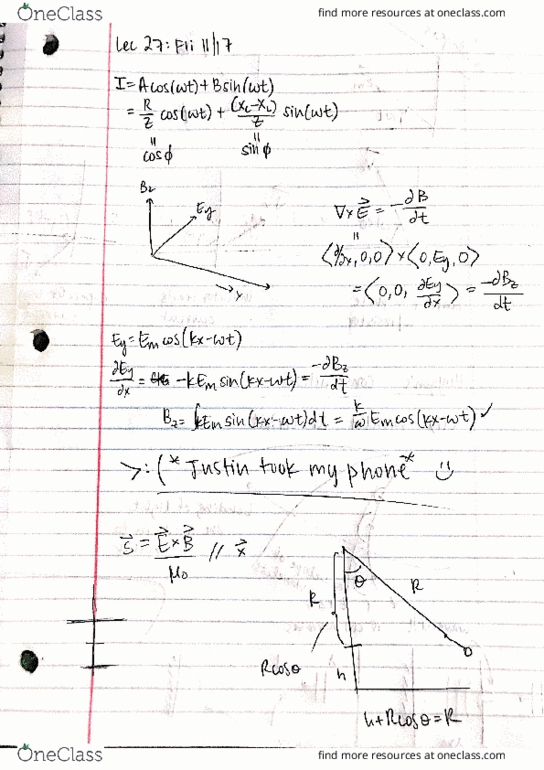 OneClass
find more resources at oneclass.com
Lec 27: Fri 11/17
I = A cos(ωt) + B sin(ωt)
= R/Z cos(ωt) + (X_L - X_L)/Z sin(ωt)
= =
cosϕ sinϕ
B_z
E_y
→ x
∇ × E⃗ = -∂B/dt
=
⟨∂/∂x, 0, 0⟩ × ⟨0, E_y, 0⟩
= ⟨0, 0, ∂E_y/∂x⟩ = -∂B_z/dt
E_y = E_m cos(kx - ωt)
∂E_y/∂x = -kE_m sin(kx - ωt) = -∂B_z/dt
B_z = ∫kE_m sin(kx - ωt)dt = k/ω E_m cos(kx - ωt) ✓
>:( *Justin took my phone* ☺
S⃗ = E⃗ × B⃗ / μ₀ // x⃗
θ
R
R
R cosθ
h
h + R cosθ = R
OneClass
find more resources at oneclass.com